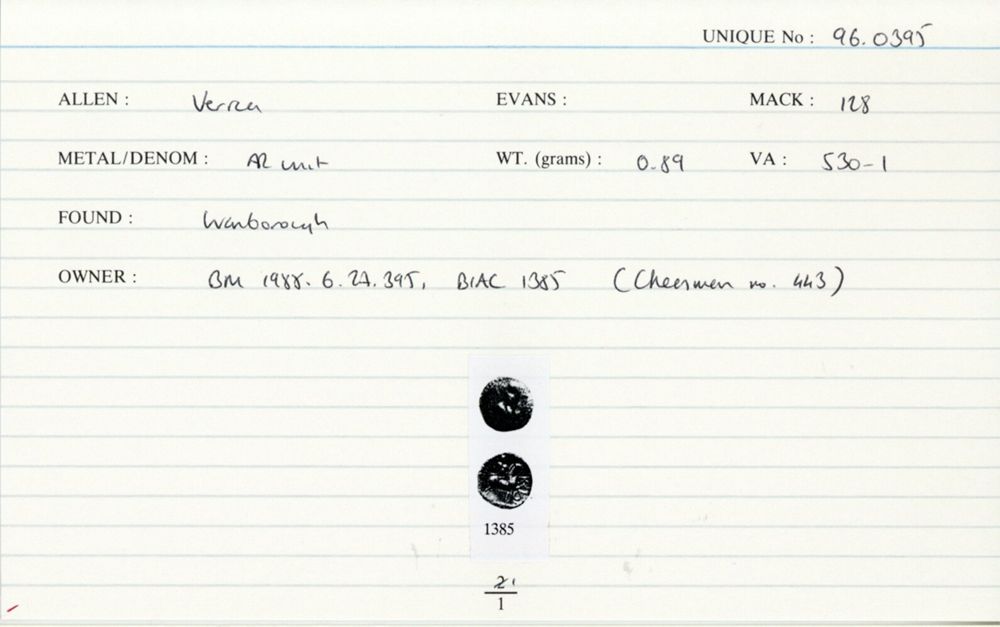 UNIQUE No : 96.0395
ALLEN : Verica EVANS : MACK : 128
METAL/DENOM : AR unit WT. (grams) : 0.89 VA : 530-1
FOUND : Wanborough
OWNER : BM 1988. 6. 27. 395, BIAC 1385 (Cheesman no. 443)
1385
21
1